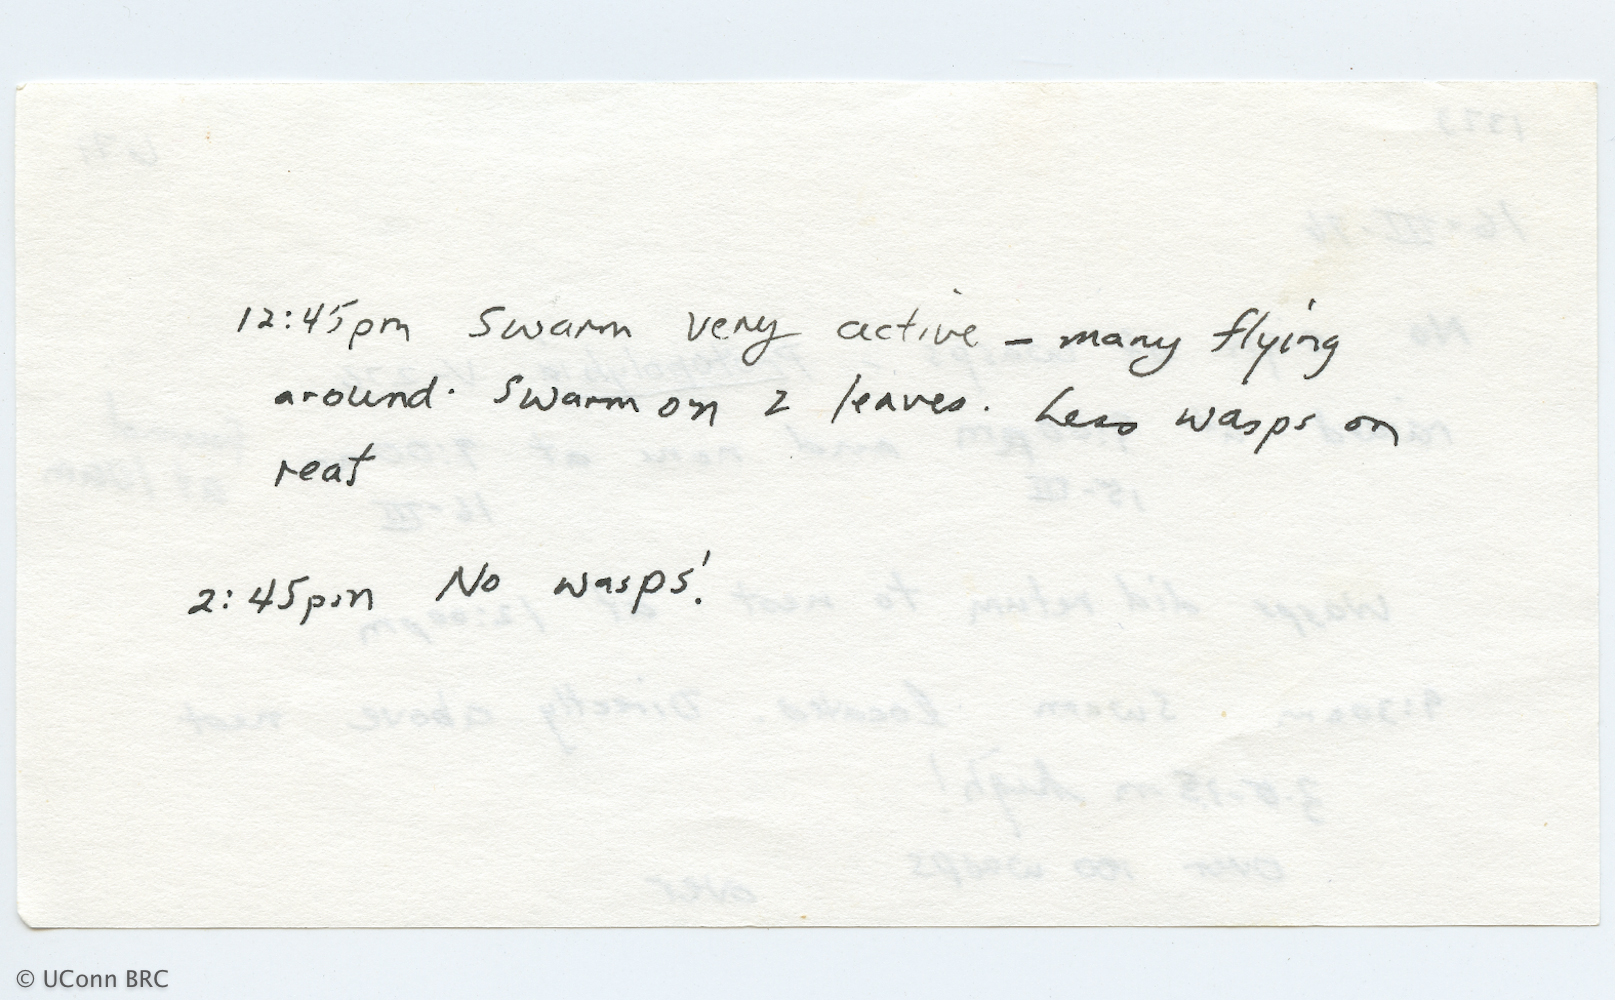 12:45pm Swarm very active - many flying
around. Swarm on 2 leaves. Less wasps on
rest
2:45pm No wasps!
© UConn BRC